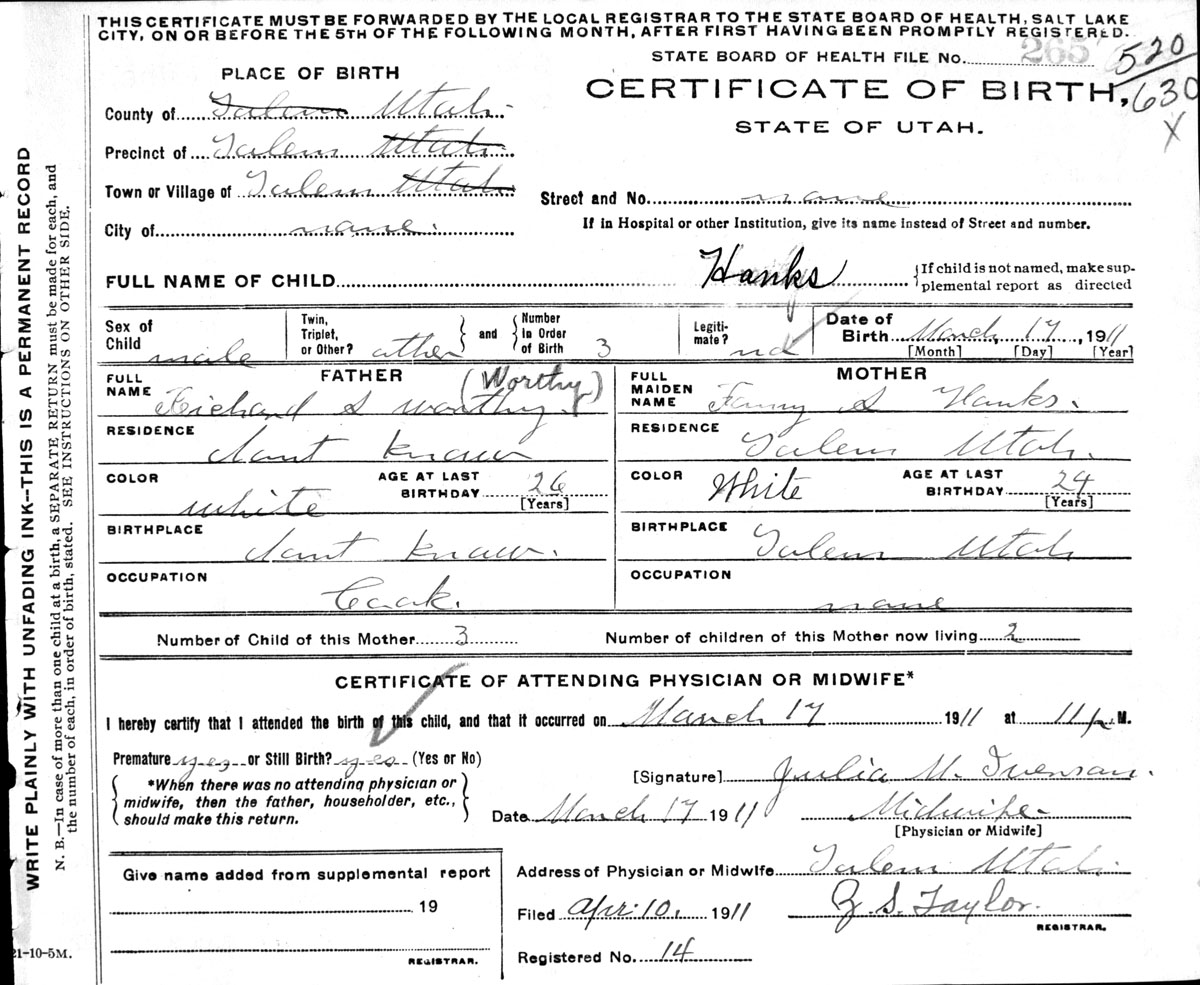 THIS CERTIFICATE MUST BE FORWARDED BY THE LOCAL REGISTRAR TO THE STATE BOARD OF HEALTH, SALT LAKE
CITY, ON OR BEFORE THE 5TH OF THE FOLLOWING MONTH, AFTER FIRST HAVING BEEN PROMPTLY REGISTERED.
STATE BOARD OF HEALTH FILE No. 265 520
630
X
PLACE OF BIRTH
CERTIFICATE OF BIRTH,
STATE OF UTAH.
County of Salem Utah
Precinct of Salem Utah
Town or Village of Salem Utah
Street and No. none
City of none
If in Hospital or other Institution, give its name instead of Street and number.
FULL NAME OF CHILD Hanks {If child is not named, make sup-
plemental report as directed
Sex of Child male
Twin, Triplet, or Other? other } and { Number in Order of Birth 3
Legiti-mate? no
Date of Birth March 17, 1911
[Month] [Day] [Year]
FATHER
FULL NAME Richard S Worthy (Worthy)
RESIDENCE dont know
COLOR white AGE AT LAST BIRTHDAY 26
[Years]
BIRTHPLACE dont know.
OCCUPATION Cook.
MOTHER
FULL MAIDEN NAME Fanny S Hanks.
RESIDENCE Salem Utah.
COLOR White AGE AT LAST BIRTHDAY 24
[Years]
BIRTHPLACE Salem Utah
OCCUPATION none
Number of Child of this Mother 3 Number of children of this Mother now living 2
CERTIFICATE OF ATTENDING PHYSICIAN OR MIDWIFE*
I hereby certify that I attended the birth of this child, and that it occurred on March 17 1911 at 11 p M.
Premature yes or Still Birth? yes (Yes or No)
{ *When there was no attending physician or
midwife, then the father, householder, etc.,
should make this return. }
[Signature] Julia M.
Date March 17 1911 Midwife
[Physician or Midwife]
Give name added from supplemental report
19
REGISTRAR.
Address of Physician or Midwife Salem Utah
Filed Apr. 10, 1911 Z. S. Taylor.
REGISTRAR.
Registered No. 14
WRITE PLAINLY WITH UNFADING INK--THIS IS A PERMANENT RECORD
N. B.—In case of more than one child at a birth, a SEPARATE RETURN must be made for each, and
the number of each, in order of birth, stated. SEE INSTRUCTIONS ON OTHER SIDE.
21-10-5M.